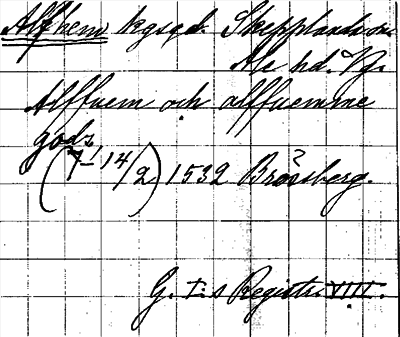 Alfhem kgsgd. Skepplanda sn
Ale hd. Vg.
Alffuem och alffuemme
godz
(7-14/2) 1532 Brossberg.
G. I:s Registr. VIII.